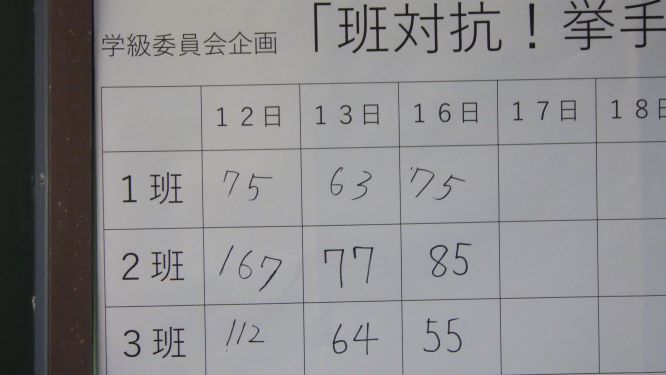 学級委員会企画 「班対抗！挙手
12日 13日 16日 17日 18日
1班 75 63 75
2班 167 77 85
3班 112 64 55